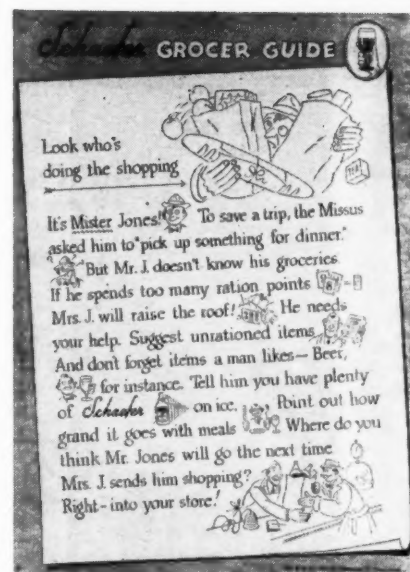 Schaefer GROCER GUIDE
Look who's
doing the shopping
It's Mister Jones! To save a trip, the Missus
asked him to "pick up something for dinner."
But Mr. J. doesn't know his groceries.
If he spends too many ration points
Mrs. J. will raise the roof! He needs
your help. Suggest unrationed items
And don't forget items a man likes — Beer,
for instance. Tell him you have plenty
of Schaefer on ice. Point out how
grand it goes with meals Where do you
think Mr. Jones will go the next time
Mrs. J. sends him shopping?
Right - into your store!